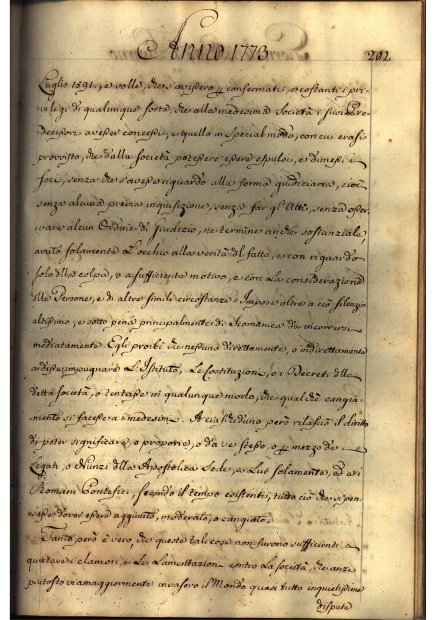 Anno 1773
202
Luglio 1591., e volle, che s'avessero p confermati, e costanti i pri-
vilegi di qualunque sorta, che alla medesima Società i suoi Pre-
decessori avesser concessi, e quello in special modo, con cui erasi
provvisto, che dalla Società potessero essere espulsi, e dimessi i
Socj, senza che s'avesse riguardo alla forma giudiciaria, cioè
senza alcuna previa inquisizione, senza far gl'Atti, senza osser-
vare alcun Ordine di Giudizio, ne termine anche sostanziale,
avuto solamente l'occhio alla verità del fatto, e con riguardo
solo alla colpa, o a sufficiente motivo, e con la considerazione
delle Persone, e di altre simili circostanze. Impose oltre a ciò silenzio
altissimo, e sotto pena principalmente di Scomunica da incorrersi
mediatamente Egli proibì che nessuno direttamente, o indirettamente
ardisse impugnare l'Istituto, le Costituzioni, o i Decreti della
detta Società, o tentasse in qualunque modo, che qualche cangia-
mento si facesse a' medesimi. A ciascheduno però rilasciò il diritto
di poter significare, o proporre, o da se stesso, o p mezzo de'
Legati, o Nunzi della Apostolica Sede, a Lui solamente, ed a i
Romani Pontefici, secondo il tempo esistenti, tutto ciò che si pen-
sasse dover essere aggiunto, moderato, o cangiato.
Tanto però è vero, che queste tali cose non furono sufficienti a
quietare i clamori, e le Lamentazioni contro la Società, che anzi
piutosto viamaggiormente invasero il Mondo quasi tutto inquietissime
dispute